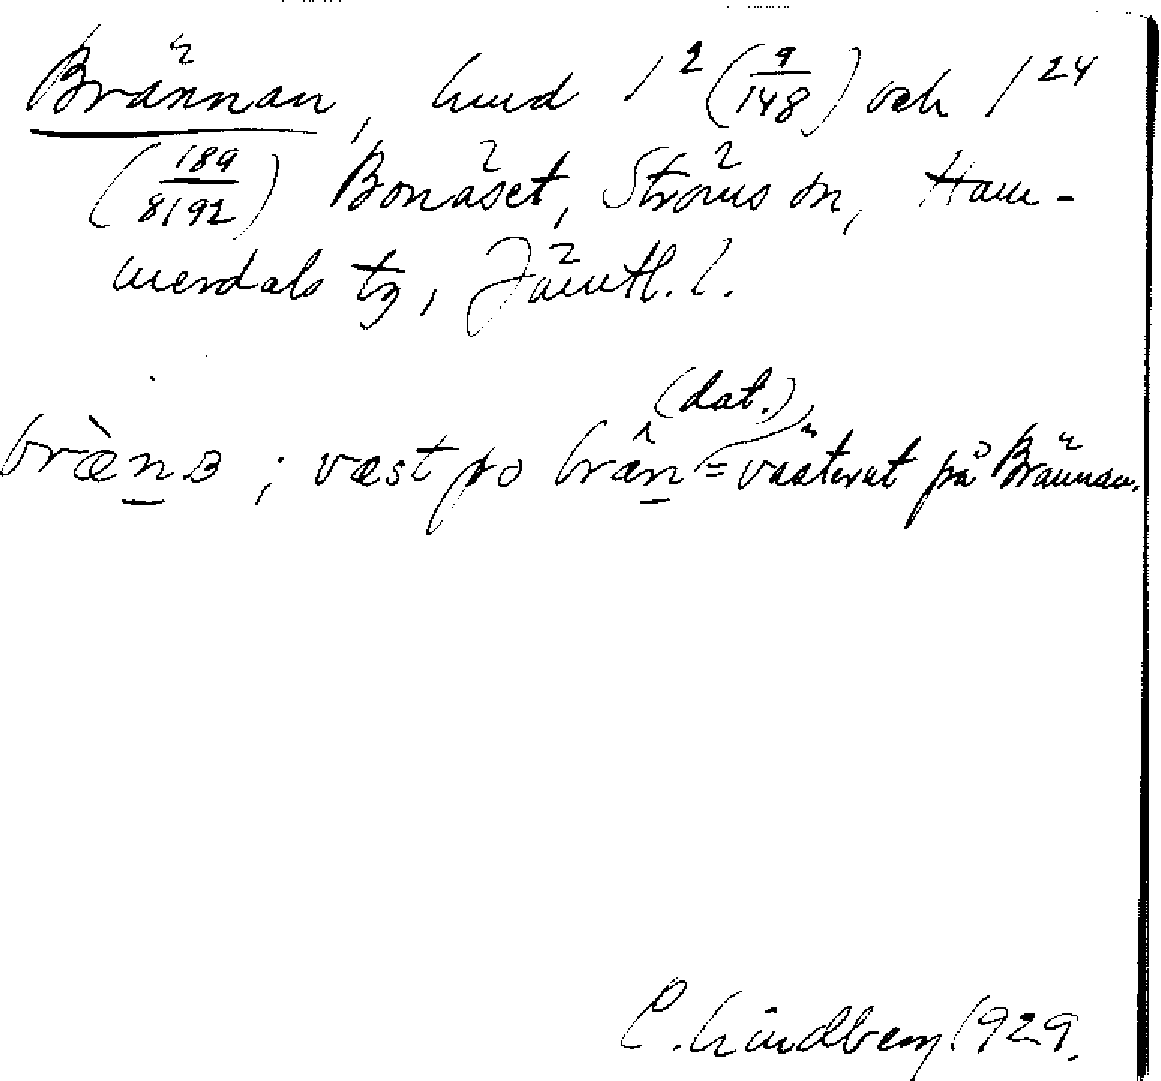 Brännan, hmd 1² (9/148) och 1²⁴
(189/8192) Bonäset, Ströms sn, Ham-
merdals tg, Jämtl. l.
(dat.)
bræ̀n̲ɜ; væst po bræ̂n̲ = västerut på Brännan.
C. Lindberg 1929.